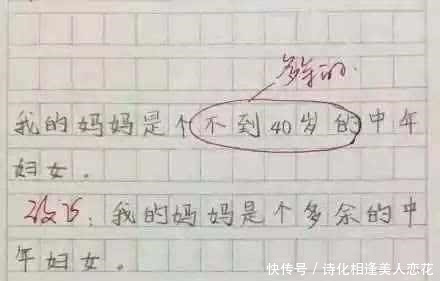 多余的.
我的妈妈是个不到40岁的中年
妇女。
改正:我的妈妈是个多余的中
年妇女。
快传号/诗化相逢美人恋花